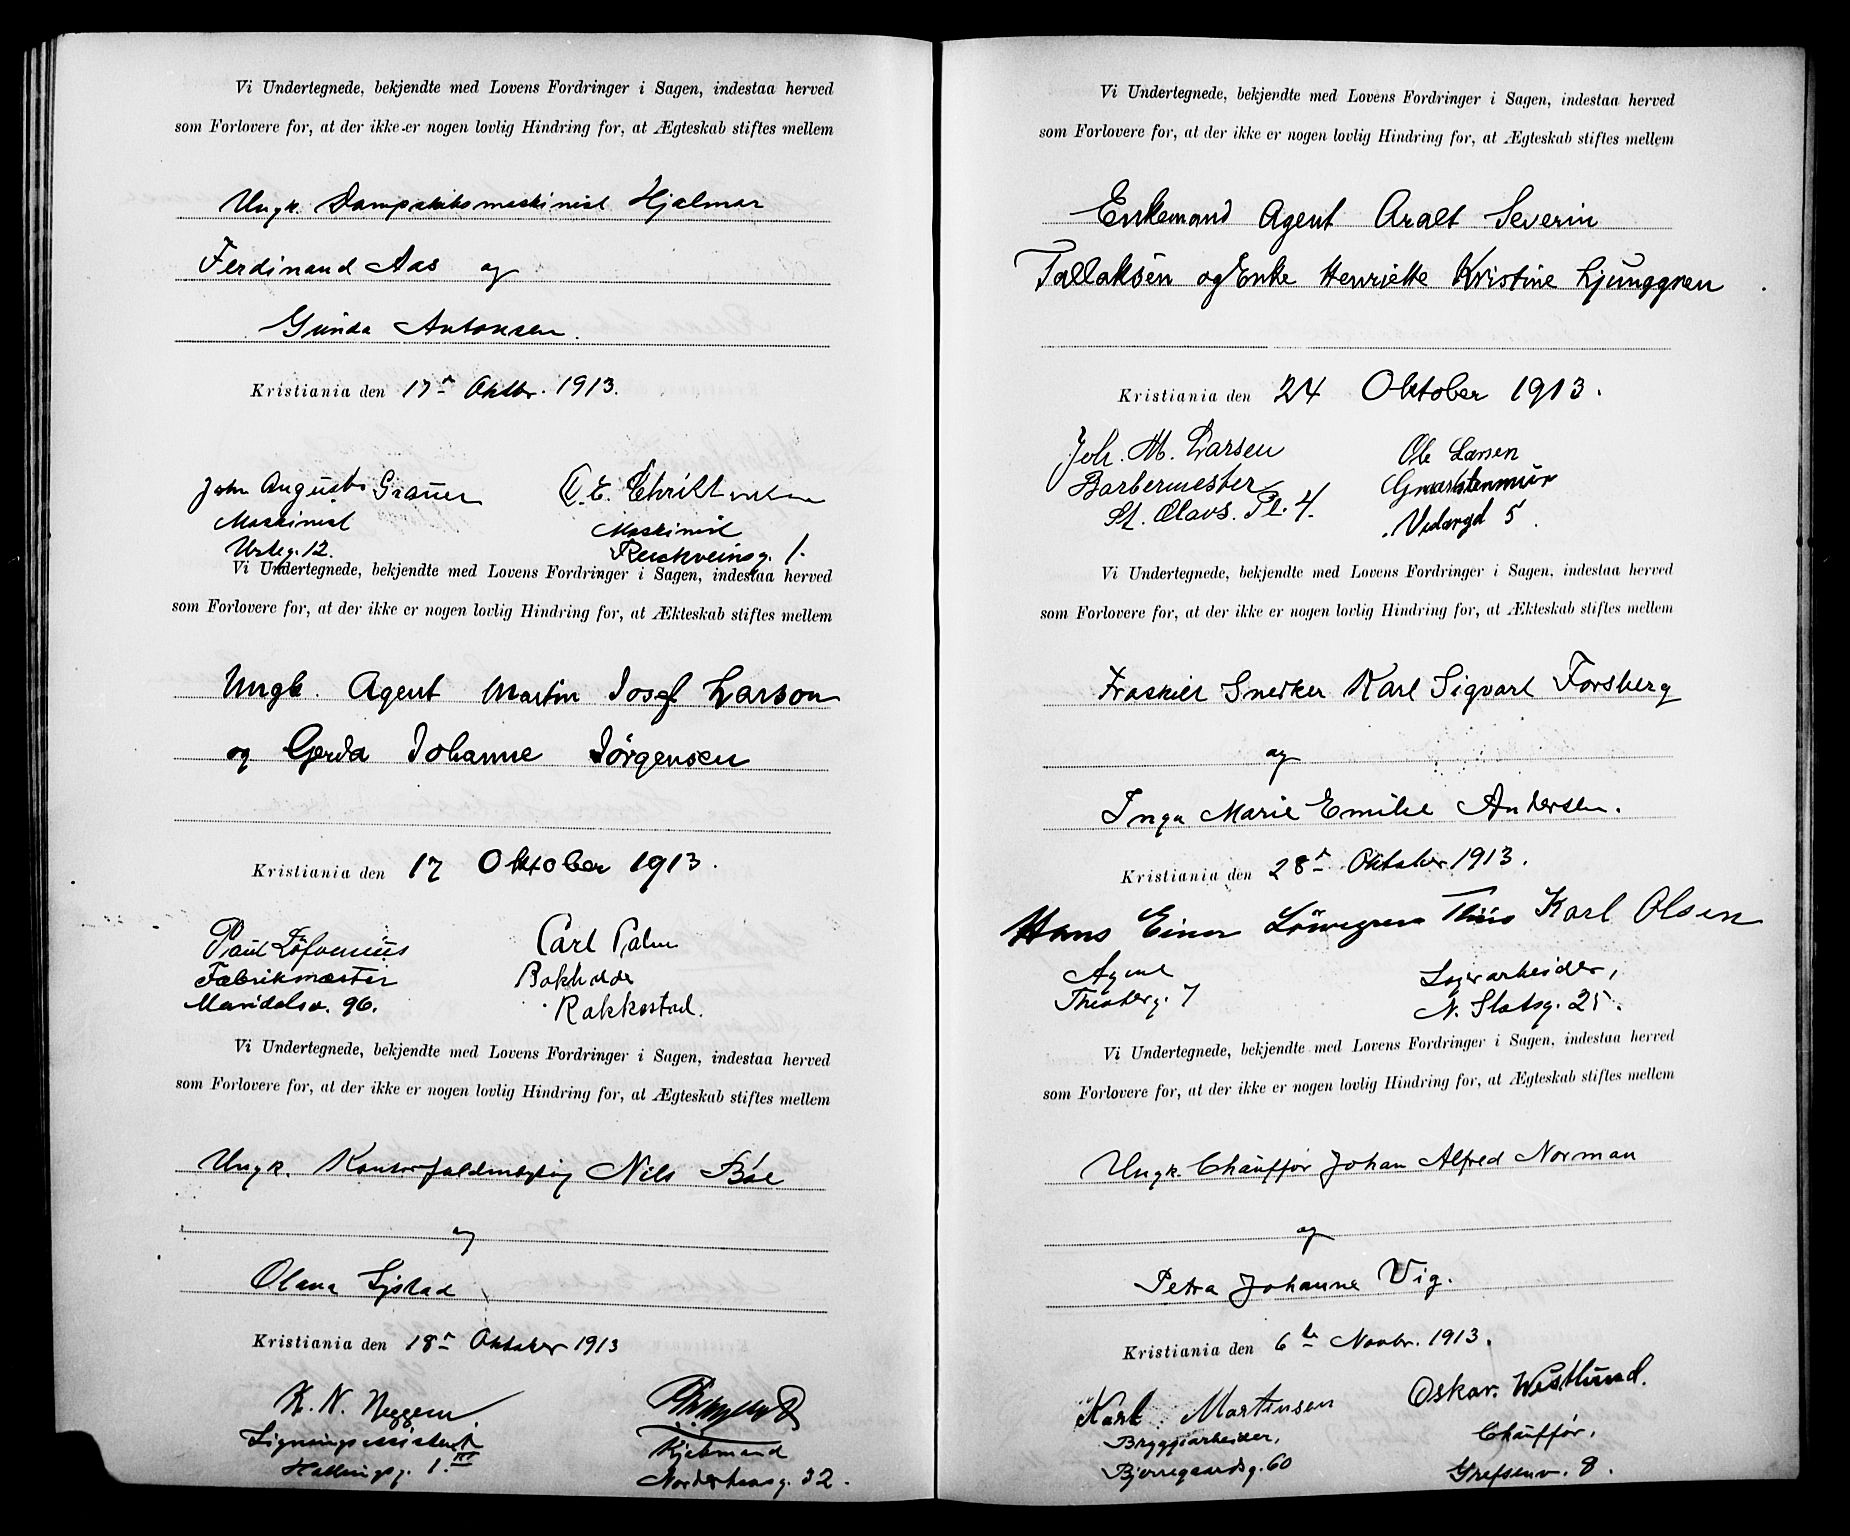 Vi Undertegnede, bekjendte med Lovens Fordringer i Sagen, indestaa herved
som Forlovere for, at der ikke er nogen lovlig Hindring for, at Ægteskab stiftes mellem
Ungk. Dampskibsmaskinist Hjalmar
Ferdinand Aas og
Gunda Antonsen.
Kristiania den 17de Oktbr. 1913.
John August Grauer
Maskinist
Urteg. 12.
E. Christensen
Maskinist
Reichweinsg. 1.
Vi Undertegnede, bekjendte med Lovens Fordringer i Sagen, indestaa herved
som Forlovere for, at der ikke er nogen lovlig Hindring for, at Ækteskab stiftes mellem
Ungk. Agent Martin Josef Larson
og Gerda Johanne Jörgensen
Kristiania den 17 Oktober 1913.
Paul Löfvenius
Fabrikmester
Maridalsv. 96.
Carl Palm
Bokholder
Rakkestad.
Vi Undertegnede, bekjendte med Lovens Fordringer i Sagen, indestaa herved
som Forlovere for, at der ikke er nogen lovlig Hindring for, at Ægteskab stiftes mellem
Ungk. Kontorfuldmægtig Nils Bøe
og
Olava Systad
Kristiania den 18de Oktober 1913
K. N. Heggem
Ligningsassistent
Hallingsg. 1. III
Kjøbmand
Norderhovsg. 32.
Vi Undertegnede, bekjendte med Lovens Fordringer i Sagen, indestaa herved
som Forlovere for, at der ikke er nogen lovlig Hindring for, at Ægteskab stiftes mellem
Enkemand Agent Aralt Severin
Tallaksen og Enke Henriette Kristine Ljunggren.
Kristiania den 24 Oktober 1913.
Joh. M. Larsen
Barbermester
St. Olavs. Pl. 4.
Ole Larsen
Vi Undertegnede, bekjendte med Lovens Fordringer i Sagen, indestaa herved
som Forlovere for, at der ikke er nogen lovlig Hindring for, at Ækteskab stiftes mellem
Fraskilt Snedker Karl Sigvart Forsberg
og
Inga Marie Emilie Andersen.
Kristiania den 28de Oktober 1913.
Hans Einar Löwegren
Agent
Theaterg. 7
Thiis Karl Olsen
Lagerarbeider,
N. Slotsg. 25.
Vi Undertegnede, bekjendte med Lovens Fordringer i Sagen, indestaa herved
som Forlovere for, at der ikke er nogen lovlig Hindring for, at Ægteskab stiftes mellem
Ungk. Chauffør Johan Alfred Norman
og
Petra Johanne Vig.
Kristiania den 6te Novbr. 1913.
Karl Martinsen
Bryggiarbeider,
Bjerregaardsg. 60
Oskar. Westlund.
Chauffør,
Grefsenv. 8.